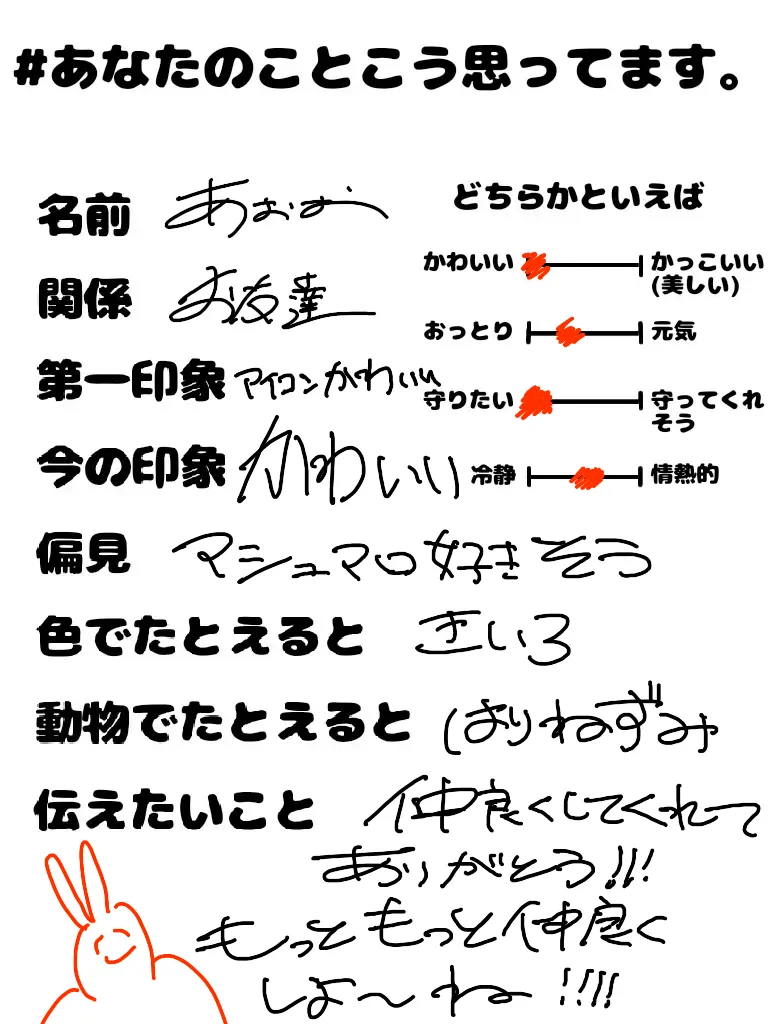 #あなたのことこう思ってます。
名前 あおお
関係 お友達
第一印象 アイコンかわいい
今の印象 かわいい
偏見 マシュマロ好きそう
色でたとえると きいろ
動物でたとえると はりねずみ
伝えたいこと 仲良くしてくれて
ありがとう!!!
もっともっと仲良く
しよ〜ね !!!!
どちらかといえば
かわいい かっこいい
(美しい)
おっとり 元気
守りたい 守ってくれ
そう
冷静 情熱的